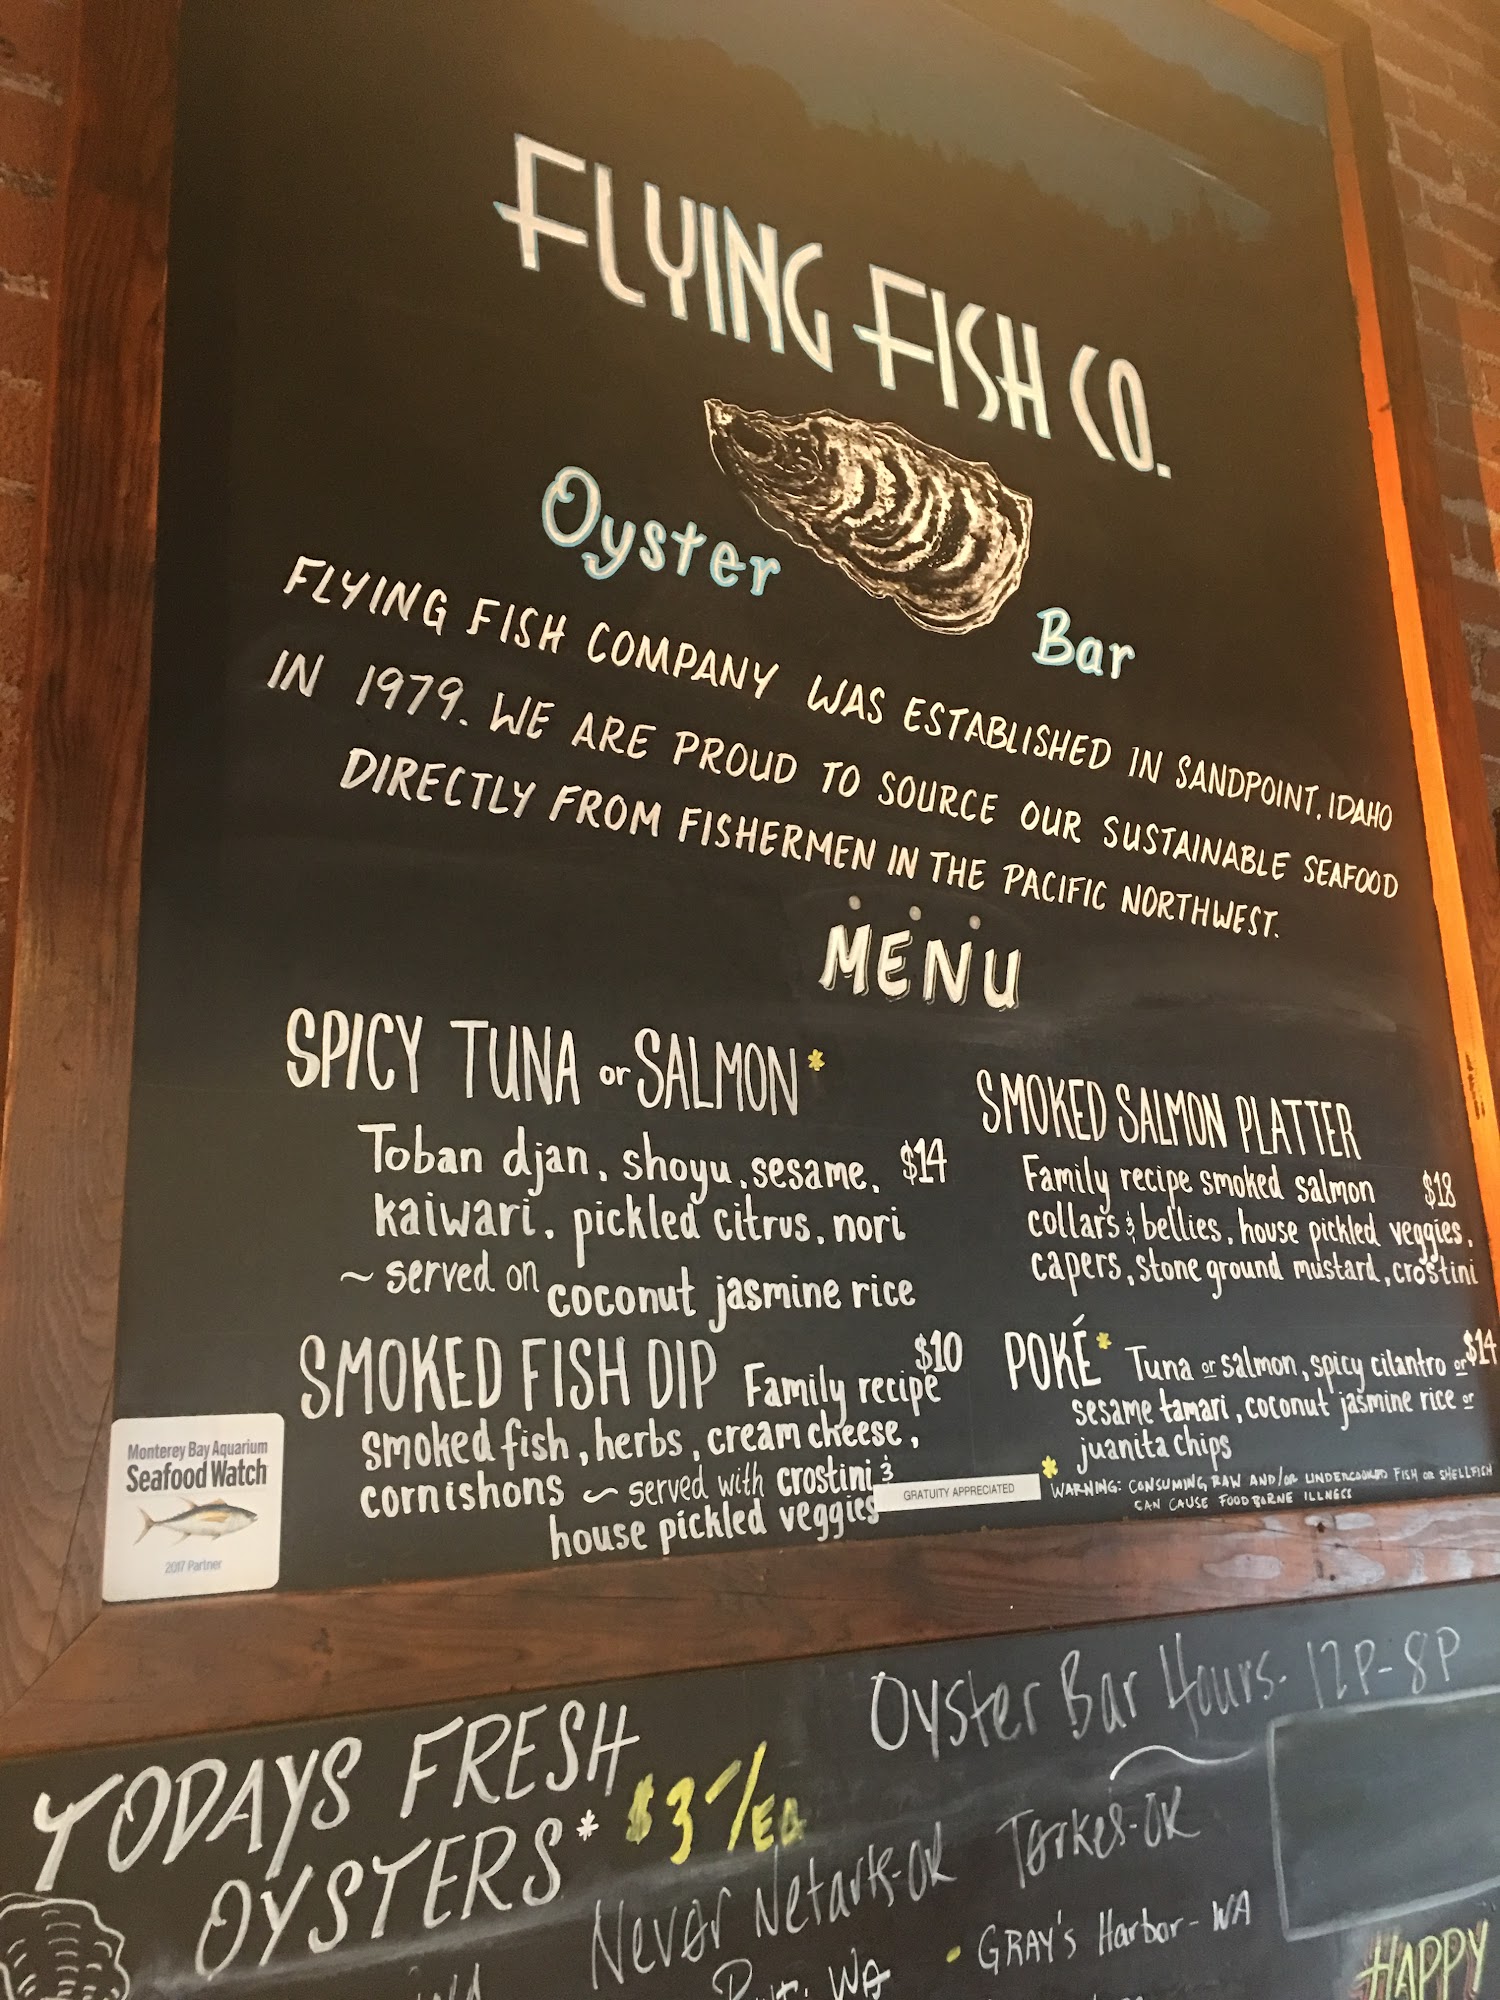 FLYING FISH CO.
Oyster
Bar
FLYING FISH COMPANY WAS ESTABLISHED IN SANDPOINT, IDAHO
IN 1979. WE ARE PROUD TO SOURCE OUR SUSTAINABLE SEAFOOD
DIRECTLY FROM FISHERMEN IN THE PACIFIC NORTHWEST.
MENU
SPICY TUNA or SALMON*
Toban djan, shoyu, sesame, $14
kaiwari, pickled citrus, nori
~ served on coconut jasmine rice
SMOKED FISH DIP Family recipe $10
smoked fish, herbs, cream cheese,
cornishons ~ served with crostini &
house pickled veggies
SMOKED SALMON PLATTER
Family recipe smoked salmon $18
collars & bellies, house pickled veggies,
capers, stone ground mustard, crostini
POKÉ* Tuna or salmon, spicy cilantro or $14
sesame tamari, coconut jasmine rice or
juanita chips
* WARNING: CONSUMING RAW AND/OR UNDERCOOKED FISH OR SHELLFISH
CAN CAUSE FOODBORNE ILLNESS
GRATUITY APPRECIATED
Monterey Bay Aquarium
Seafood Watch
2017 Partner
Oyster Bar Hours- 12P-8P
TODAYS FRESH
OYSTERS* $3-/EA
Nevør Netarts-OR
Tørkes-OR
GRAY'S Harbor-WA
WA
HAPPY